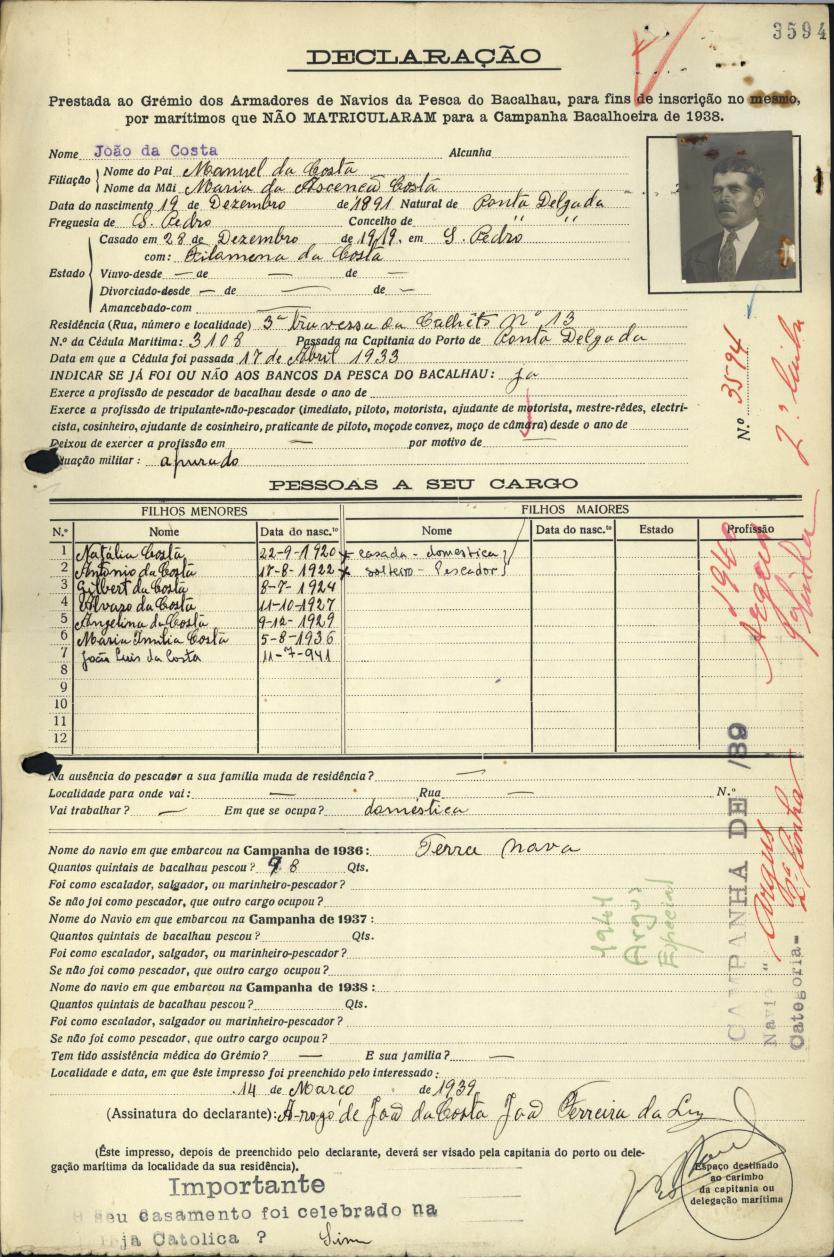 3594
DECLARAÇÃO
Prestada ao Grémio dos Armadores de Navios da Pesca do Bacalhau, para fins de inscrição no mesmo,
por marítimos que NÃO MATRICULARAM para a Campanha Bacalhoeira de 1938.
Nome João da Costa Alcunha
Filiação Nome do Pai Manuel da Costa
Nome da Mãi Maria da Ascencã Costa
Data do nascimento 19 de Dezembro de 1891 Natural de Ponta Delgada
Freguesia de S. Pedro Concelho de " "
Estado Casado em 28 de Dezembro de 1919. em S. Pedro
com: Filamena da Costa
Viuvo-desde — de — de —
Divorciado-desde — de — de —
Amancebado-com
Residência (Rua, número e localidade) 3ª travessa da Calhêta Nº 13
N.º da Cédula Marítima: 3108 Passada na Capitania do Porto de Ponta Delgada
Data em que a Cédula foi passada 17 de Abril 1933
INDICAR SE JÁ FOI OU NÃO AOS BANCOS DA PESCA DO BACALHAU: ja
Exerce a profissão de pescador de bacalhau desde o ano de
Exerce a profissão de tripulante-não-pescador (imediato, piloto, motorista, ajudante de motorista, mestre-rêdes, electri-
cista, cosinheiro, ajudante de cosinheiro, praticante de piloto, moço de convez, moço de câmara) desde o ano de
Deixou de exercer a profissão em — por motivo de —
tuação militar: apurado
N.º 3594
2ª linha
PESSOAS A SEU CARGO
FILHOS MENORES FILHOS MAIORES
N.º Nome Data do nasc.to Nome Data do nasc.to Estado Profissão
1 Natália Costa 22-9-1920 x casada - domestica
2 Antonio da Costa 17-8-1922 x solteiro - Pescador
3 Gilbert da Costa 8-7-1924
4 Alvaro da Costa 11-10-1927
5 Angelina da Costa 9-12-1929
6 Maria Imilia Costa 5-8-1936
7 João Luis da Costa 11-7-941
8
9
10
11
12
1940
Argus
2ª linha
Na ausência do pescador a sua família muda de residência? —
Localidade para onde vai: — Rua — N.º
Vai trabalhar? — Em que se ocupa? doméstica
Nome do navio em que embarcou na Campanha de 1936: Terra Nova
Quantos quintais de bacalhau pescou? 98 Qts.
Foi como escalador, salgador, ou marinheiro-pescador?
Se não foi como pescador, que outro cargo ocupou?
Nome do Navio em que embarcou na Campanha de 1937:
Quantos quintais de bacalhau pescou? Qts.
Foi como escalador, salgador, ou marinheiro-pescador?
Se não foi como pescador, que outro cargo ocupou?
Nome do navio em que embarcou na Campanha de 1938:
Quantos quintais de bacalhau pescou? Qts.
Foi como escalador, salgador ou marinheiro-pescador?
Se não foi como pescador, que outro cargo ocupou?
1941
Argus
Especial
CAMPANHA DE 1939
Navio " Argus
Categoria- 2ª linha
Tem tido assistência médica do Grémio? — E sua família? —
Localidade e data, em que êste impresso foi preenchido pelo interessado:
14 de Março de 1939
(Assinatura do declarante): A rogo de Joã da Costa Joã Ferreira da Luz
(Êste impresso, depois de preenchido pelo declarante, deverá ser visado pela capitania do porto ou dele-
gação marítima da localidade da sua residência).
Espaço destinado
ao carimbo
da capitania ou
delegação marítima
Importante
seu casamento foi celebrado na
ja Catolica ? Sim